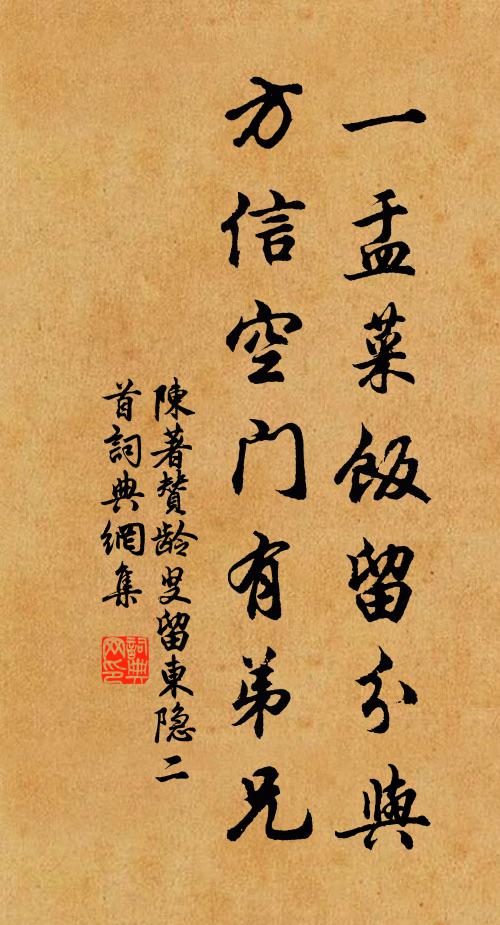 一盂菜飯留分與
方信空門有弟兄
陳著賛龄叟留東隐二
首詞典網集
詞典网印